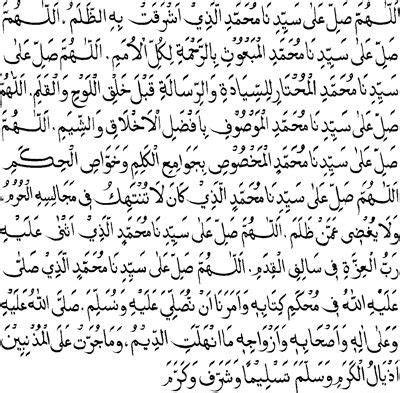 اَللّٰهُمَّ صَلِّ عَلٰى سَيِّدِنَا مُحَمَّدٍ الَّذِيْ اَشْرَقَتْ بِهِ الظُّلَمُ. اَللّٰهُمَّ
صَلِّ عَلٰى سَيِّدِنَا مُحَمَّدٍ الْمَبْعُوْثِ بِالرَّحْمَةِ لِكُلِّ الْاُمَمِ. اَللّٰهُمَّ صَلِّ عَلٰى
سَيِّدِنَا مُحَمَّدٍ الْمُخْتَارِ لِلسِّيَادَةِ وَالرِّسَالَةِ قَبْلَ خَلْقِ اللَّوْحِ وَالْقَلَمِ. اَللّٰهُمَّ
صَلِّ عَلٰى سَيِّدِنَا مُحَمَّدٍ الْمَوْصُوْفِ بِاَفْضَلِ الْاَخْلَاقِ وَالشِّيَمِ. اَللّٰهُمَّ
صَلِّ عَلٰى سَيِّدِنَا مُحَمَّدٍ الْمَخْصُوْصِ بِجَوَامِعِ الْكَلِمِ وَخَوَاصِّ الْحِكَمِ
اَللّٰهُمَّ صَلِّ عَلٰى سَيِّدِنَا مُحَمَّدٍ الَّذِيْ كَانَ لَا تُنْتَهَكُ فِيْ مَجَالِسِهِ الْحُرُمُ،
وَلَا يُغْضِيْ عَمَّنْ ظَلَمَ. اَللّٰهُمَّ صَلِّ عَلٰى سَيِّدِنَا مُحَمَّدٍ الَّذِيْ اَثْنٰى عَلَيْهِ
رَبُّ الْعِزَّةِ فِيْ سَالِفِ الْقِدَمِ. اَللّٰهُمَّ صَلِّ عَلٰى سَيِّدِنَا مُحَمَّدٍ الَّذِيْ صَلَّى
عَلَيْهِ اللّٰهُ فِيْ مُحْكَمِ كِتَابِهِ وَاَمَرَنَا اَنْ نُصَلِّيَ عَلَيْهِ وَنُسَلِّمَ. صَلَّى اللّٰهُ عَلَيْهِ
وَعَلٰى اٰلِهِ وَاَصْحَابِهِ وَاَزْوَاجِهِ مَا انْهَلَّتِ الدِّيَمُ، وَمَا جُرَّتْ عَلَى الْمُذْنِبِيْنَ
اَذْيَالُ الْكَرَمِ وَسَلَّمَ تَسْلِيْمًا وَشَرَّفَ وَكَرَّمَ